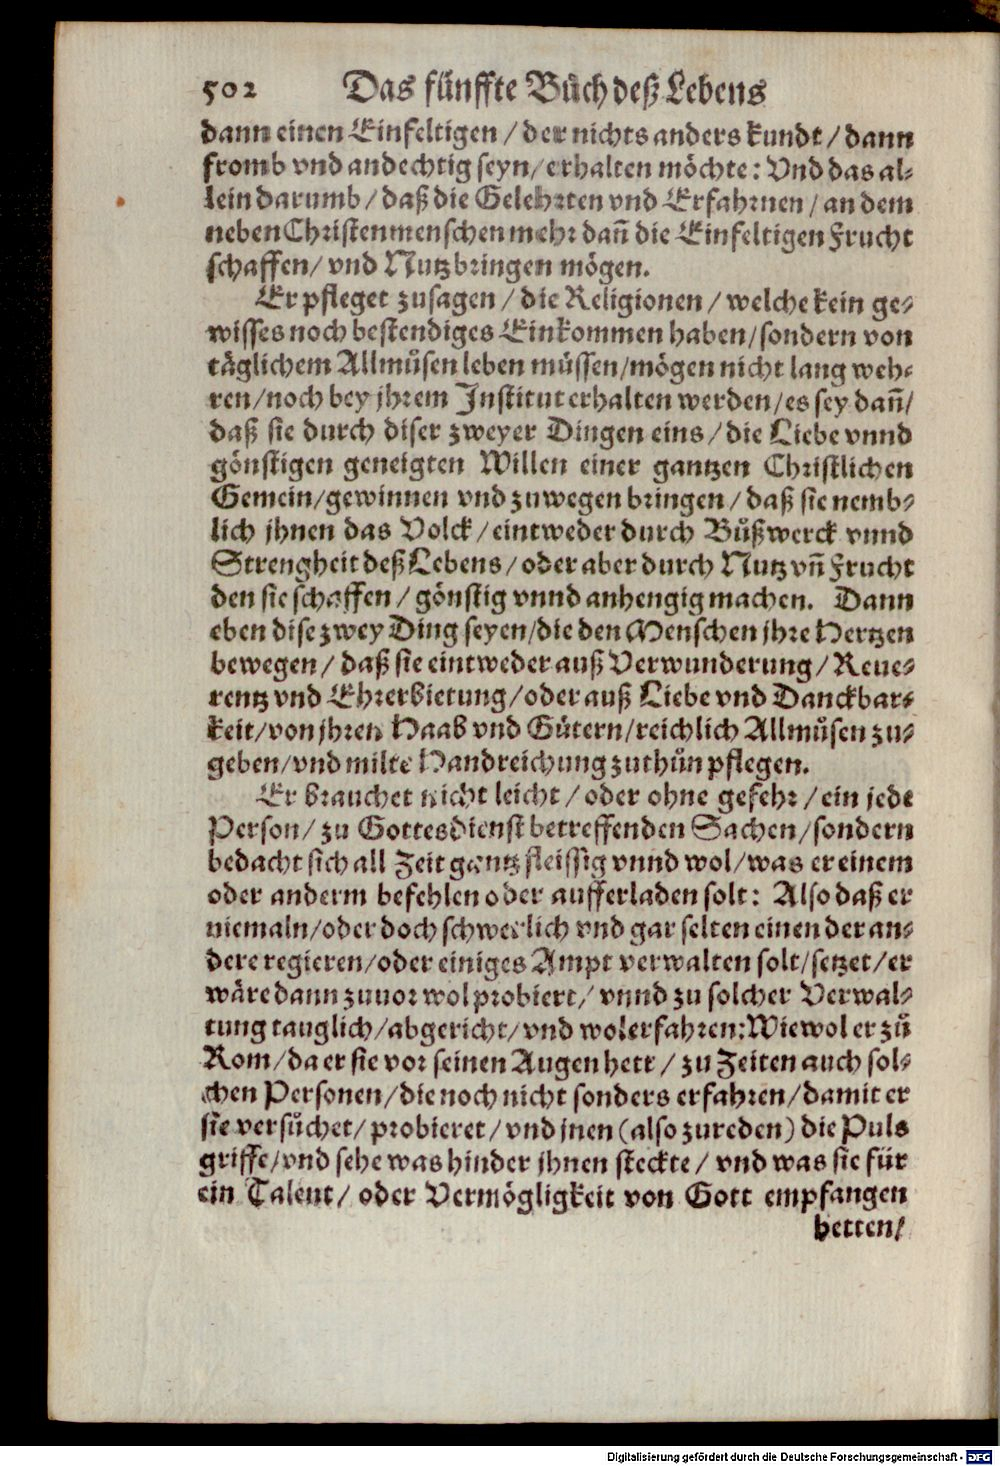 502 Das fünffte Bůch deß Lebens
dann einen Einfeltigen / der nichts anders kundt / dann
fromb vnd andechtig seyn / erhalten möchte: Vnd das al-
lein darumb / daß die Gelehrten vnd Erfahrnen / an dem
neben Christenmenschen mehr dañ die Einfeltigen Frucht
schaffen / vnd Nutz bringen mögen.
Er pfleget zusagen / die Religionen / welche kein ge-
wisses noch bestendiges Einkommen haben / sondern von
täglichem Allmůsen leben müssen / mögen nicht lang weh-
ren / noch bey jhrem Institut erhalten werden / es sey dañ /
daß sie durch diser zweyer Dingen eins / die Liebe vnnd
gönstigen geneigten Willen einer gantzen Christlichen
Gemein / gewinnen vnd zuwegen bringen / daß sie nemb-
lich jhnen das Volck / eintweder durch Bůßwerck vnnd
Strengheit deß Lebens / oder aber durch Nutz vñ Frucht
den sie schaffen / gönstig vnnd anhengig machen. Dann
eben dise zwey Ding seyen / die den Menschen jhre Hertzen
bewegen / daß sie eintweder auß Verwunderung / Reue-
rentz vnd Ehrerbietung / oder auß Liebe vnd Danckbar-
keit / von jhren Haab vnd Gütern / reichlich Allmůsen zu-
geben / vnd milte Handreichung zuthůn pflegen.
Er brauchet nicht leicht / oder ohne gefehr / ein jede
Person / zu Gottesdienst betreffenden Sachen / sondern
bedacht sich all Zeit gantz fleissig vnnd wol / was er einem
oder anderm befehlen oder aufferladen solt: Also daß er
niemaln / oder doch schwerlich vnd gar selten einen der an-
dere regieren / oder einiges Ampt verwalten solt / setzet / er
wäre dann zuuor wol probiert / vnnd zu solcher Verwal-
tung tauglich / abgericht / vnd wolerfahren: Wiewol er zů
Rom / da er sie vor seinen Augen hett / zu Zeiten auch sol-
chen Personen / die noch nicht sonders erfahren / damit er
sie versůchet / probieret / vnd jnen (also zureden) die Puls
griffe / vnd sehe was hinder jhnen steckte / vnd was sie für
ein Talent / oder Vermögligkeit von Gott empfangen
hetten /
Digitalisierung gefördert durch die Deutsche Forschungsgemeinschaft - DFG